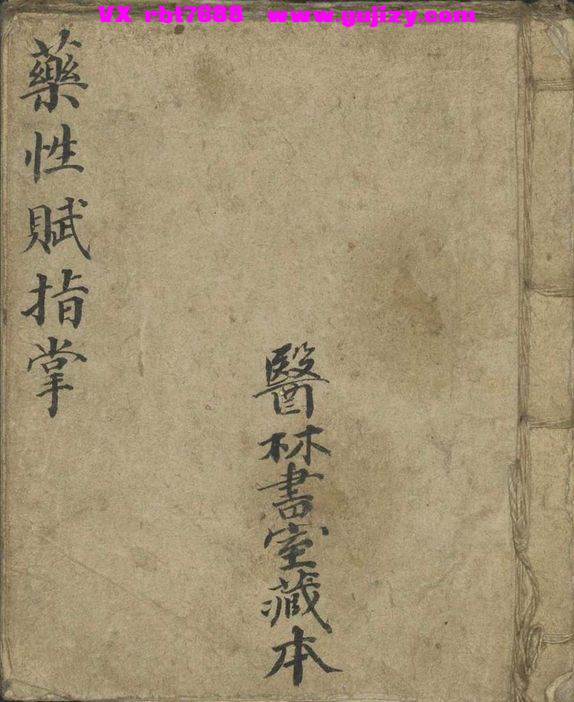 VX rbt7888 www.gujizy.com
藥性賦指掌
醫林書室藏本